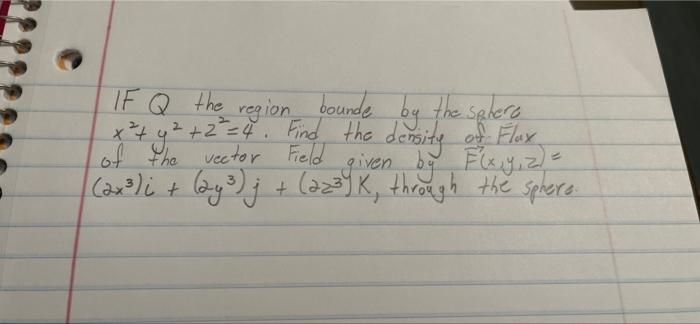 IF Q the region bounde by the sphere
x²+ y² + z² = 4. Find the density of Flux
of the vector Field given by F⃗(x,y,z) =
(2x³)i + (2y³)j + (2z³)K, through the sphere.